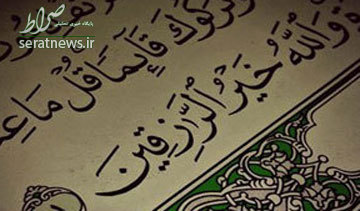 صراط
پایگاه خبری تحلیلی
seratnews.ir
كُوكَ قَآئِمًا قُلْ مَا
وَٱللَّهُ خَيْرُ ٱلرَّٰزِقِينَ